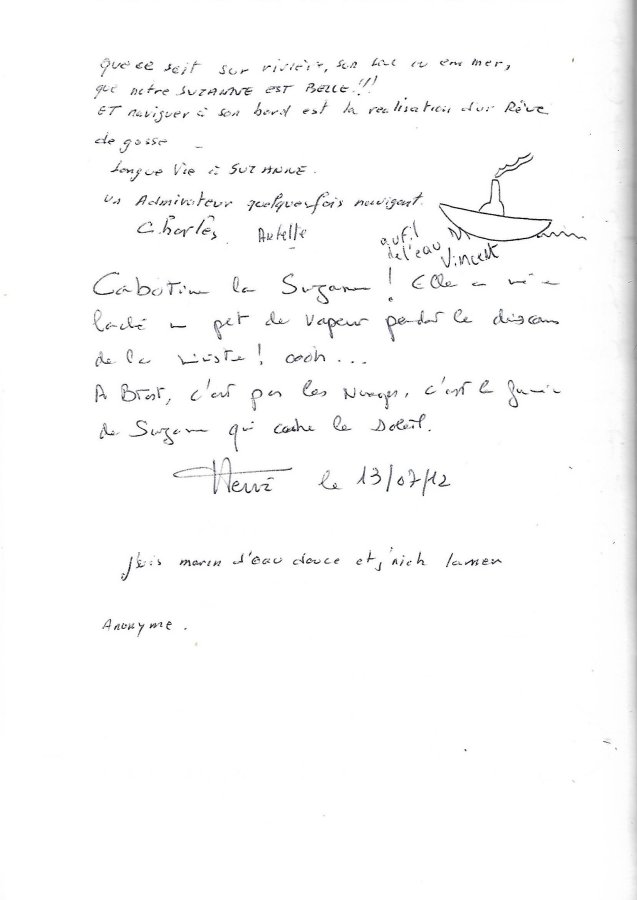 Que ce soit sur rivière, sur lac ou en mer,
que notre SUZANNE EST BELLE!!!
ET naviguer à son bord est la realisation d'un Rêve
de gosse
Longue Vie à SUZANNE.
un Admirateur quelquefois navigant.
Charles
au fil
de l'eau
Vincent
Cabotine la Suzanne ! Elle a
laché un pet de vapeur pendant le discours
de la ministre ! oooh...
A Brest, c'est pas les Nuages, c'est la fumée
de Suzanne qui cache le Soleil.
Hervé le 13/07/12
marin d'eau douce et
Anonyme.